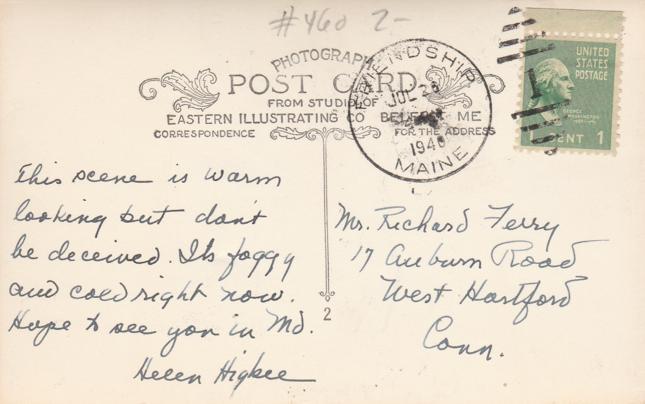 #460 2-
PHOTOGRAPH
POST CARD
FROM STUDIO OF
EASTERN ILLUSTRATING CO BELFAST ME
CORRESPONDENCE
FOR THE ADDRESS
FRIENDSHIP
JUL 26
1946
MAINE
1
UNITED
STATES
POSTAGE
GEORGE
WASHINGTON
CENT 1
This scene is warm
looking but don't
be deceived. Its foggy
and cold right now.
Hope to see you in Md.
Helen Higbee
Mr. Richard Ferry
17 Auburn Road
West Hartford
Conn.
2